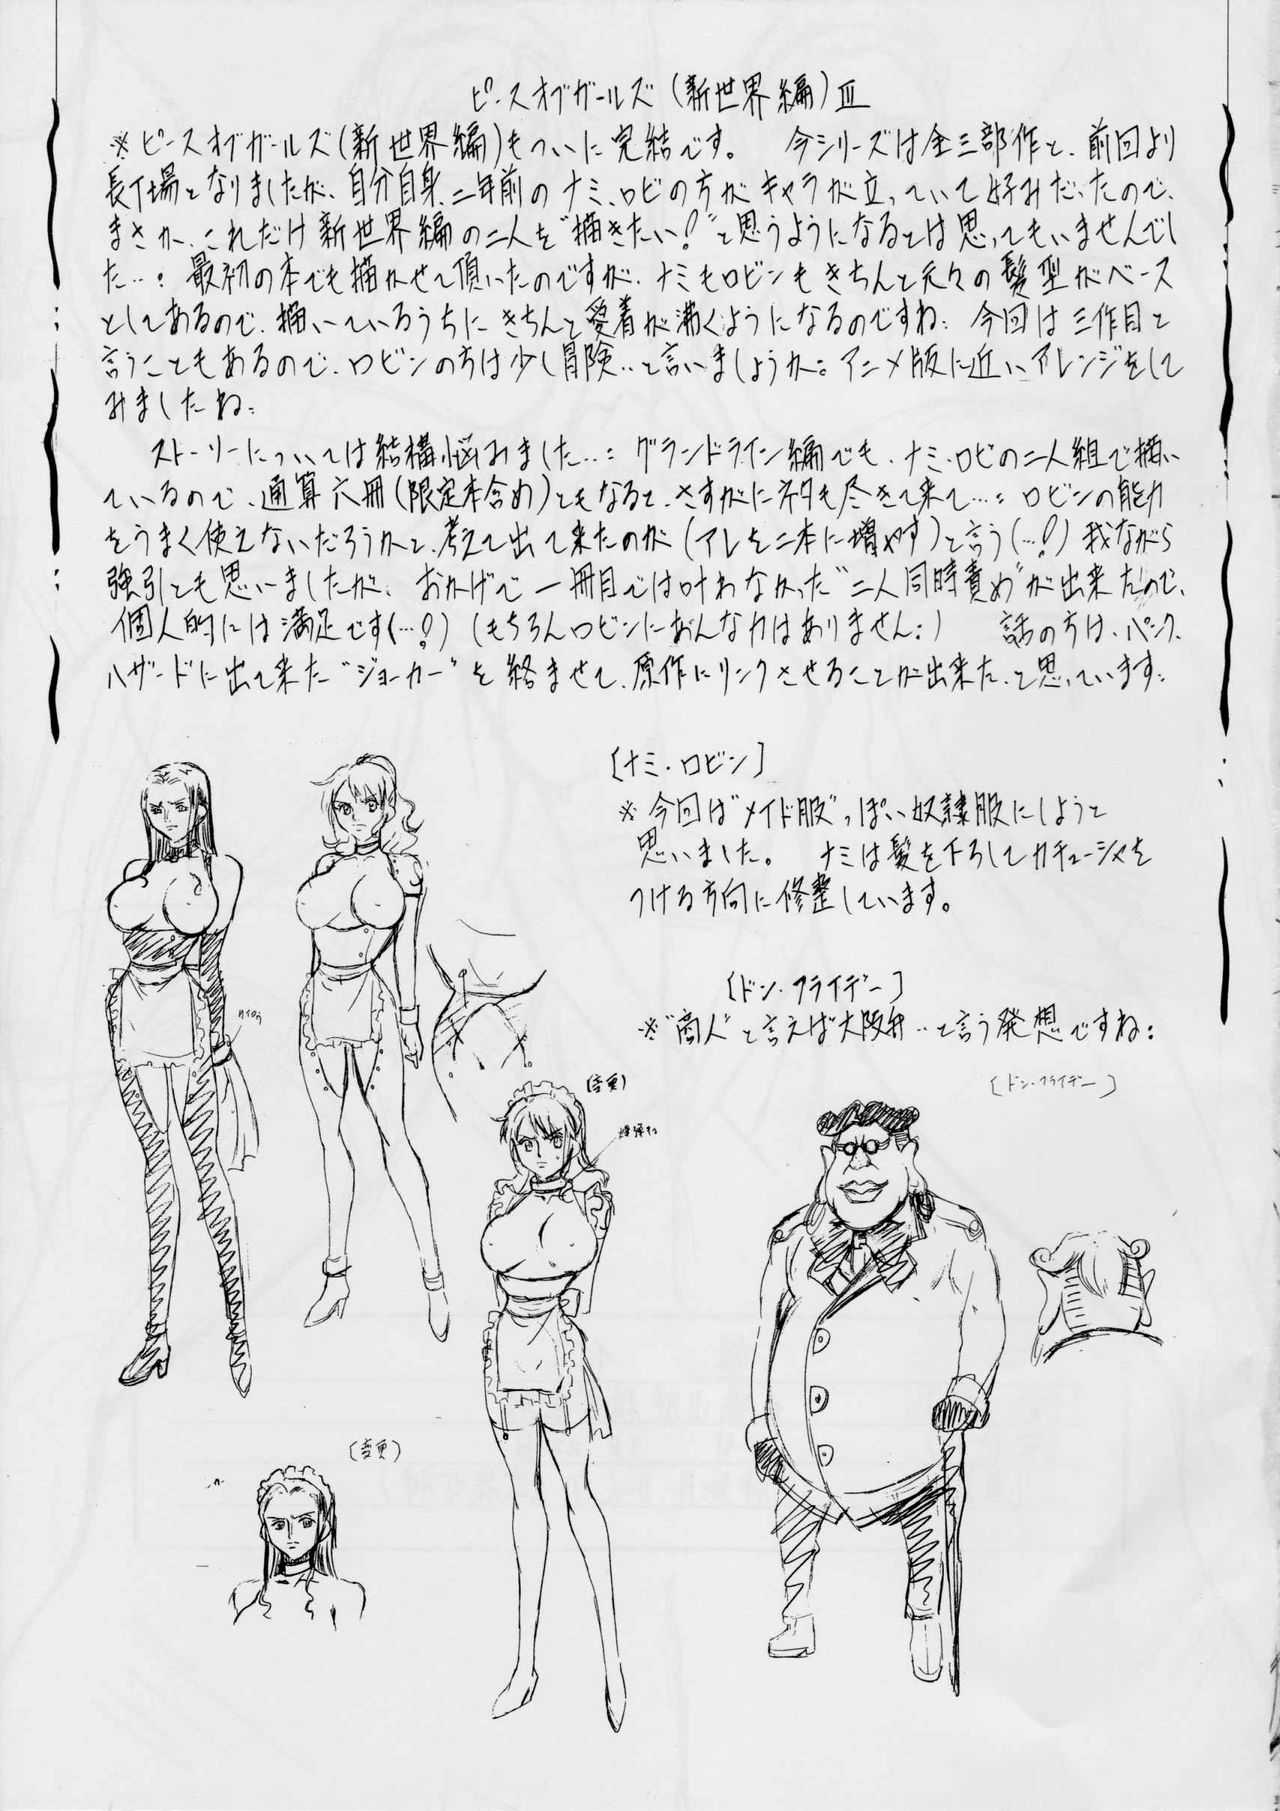 ピースオブガールズ(新世界編)Ⅲ
※ピースオブガールズ(新世界編)もついに完結です。 今シリーズは全三部作と、前回より
長丁場となりましたが、自分自身、二年前のナミ、ロビの方がキャラが立っていて好みだったので、
まさか、これだけ新世界編の二人を“描きたい!”と思うようになるとは思ってもいませんでし
た…: 最初の本でも描かせて頂いたのですが、ナミもロビンもきちんと元々の髪型がベース
としてあるので、描いているうちにきちんと愛着が沸くようになるのですね: 今回は三作目と
言うこともあるので、ロビンの方は少し冒険‥と言いましょうか: アニメ版に近いアレンジをして
みましたね:
ストーリーについては結構悩みました…: グランドライン編でも、ナミ・ロビの二人組で描い
ているので、通算六冊(限定本含め)ともなると、さすがにネタも尽きて来て…: ロビンの能力
をうまく使えないだろうかと、考えて出て来たのが(アレを二本に増やす)と言う(…!?)我ながら
強引とも思いましたが、おかげで一冊目では叶わなかった“二人同時責め”が出来たので、
個人的には満足です(…!?)(もちろんロビンにあんな力はありません:) 話の方は、パンク
ハザードに出て来た“ジョーカー”を絡ませて、原作にリンクさせることが出来た、と思っています:
[ナミ・ロビン]
※今回は“メイド服”っぽい奴隷服にしようと
思いました。 ナミは髪を下ろしてカチューシャを
つける方向に修整しています。
[ドン・フライデー]
※“商人”と言えば大阪弁‥と言う発想ですね:
[ドン・フライデー]
(変更)
(変更)